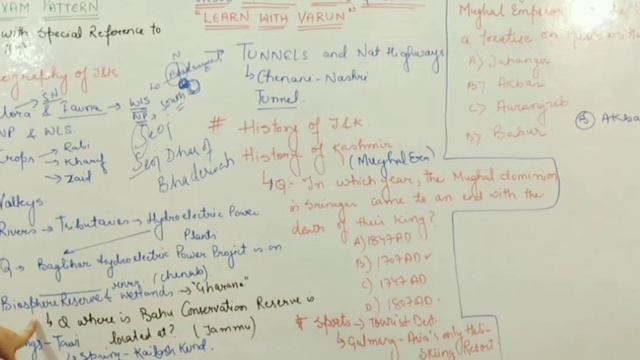 EXAM PATTERN
with Special Reference to
"LEARN WITH VARUN"
Geography of J&K
Flora & Fauna → WLS
NP
NP & WLS
Crops → Rabi
→ Kharif
→ Zaid
Valleys
Rivers → Tributaries → Hydroelectric Power
Plants
Q → Baglihar Hydroelectric Power Project is on
river (Chenab)
Biosphere Reserve & Wetlands → "Gharana"
↳ Q Where is Bahu Conservation Reserve is
located at? (Jammu)
↳ Spring - Kailash Kund
South
Seoj
Seoj Dhar
Bhaderwah
→ TUNNELS and Nat Highways
↳ Chenani-Nashri
Tunnel
# History of J&K
History of Kashmir
(Mughal Era)
↳ Q- In which year, the Mughal dominion
in Srinagar came to an end with the
death of their King?
A) 1847 AD
B) 1707 AD ✓
C) 1747 AD
D) 1807 AD
# Sports → Tourist Dest.
↳ Gulmarg - Asia's only Heli-
Skiing Resort
Mughal Emperor
a treatise on
A) Jahangir
B) Akbar
C) Aurangzeb
D) Babur
(B) AKBA